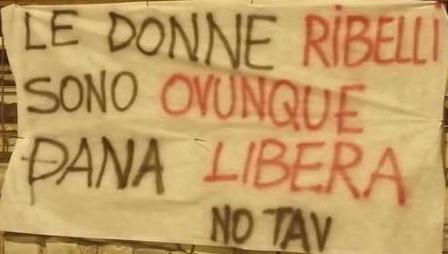 LE DONNE RIBELLI
SONO OVUNQUE
DANA LIBERA
NO TAV